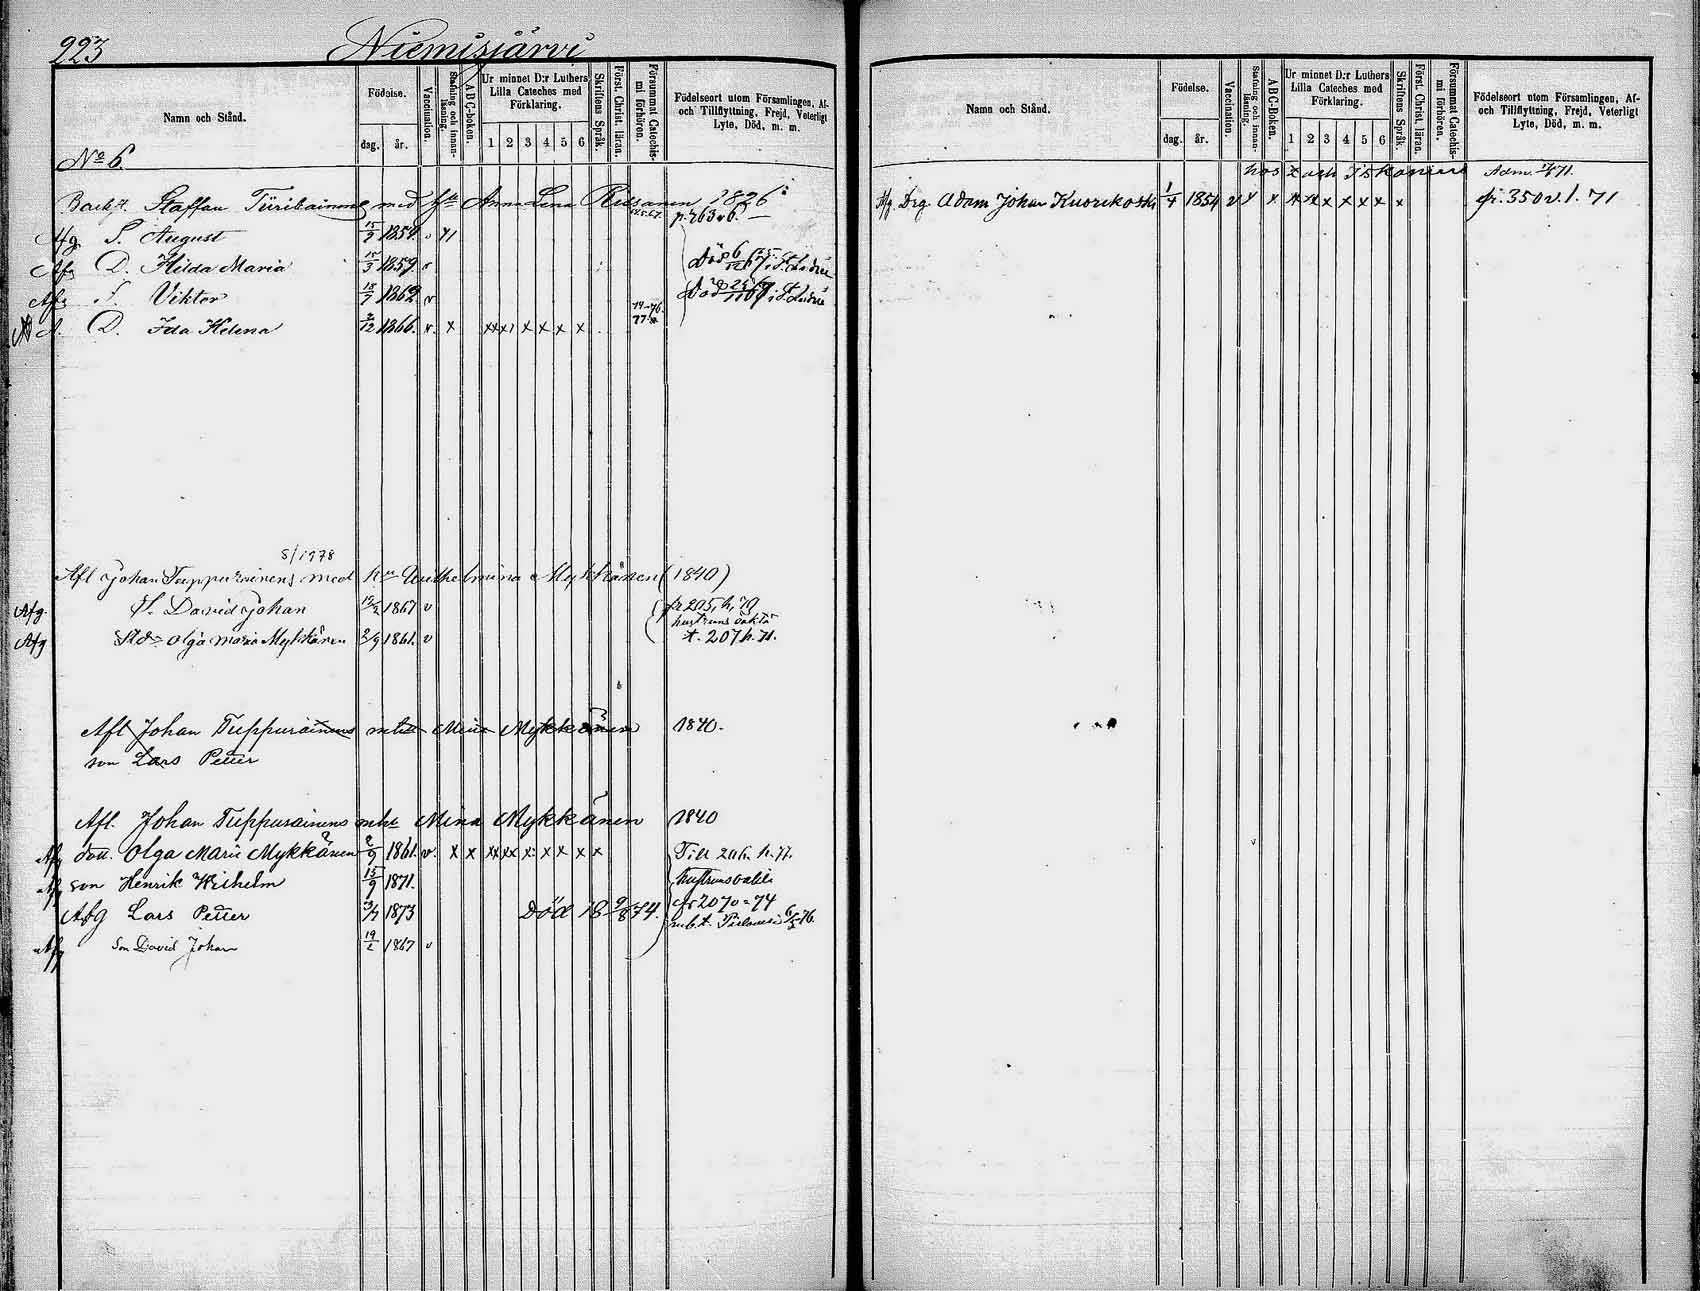 223 Niemisjärvi
Namn och Stånd. Födelse. dag. år. Vaccination. Stafning och innanläsning. ABC-boken. Ur minnet D:r Luthers Lilla Cateches med Förklaring. 1 2 3 4 5 6 Skriftens Språk. Först. Christ. läran. Försummat Catechismi förhören. Födelseort utom Församlingen, Af- och Tillflyttning, Frejd, Veterligt Lyte, Död, m. m.
No 6.
Staffan med Anna Lena 1826
Afg S. August 15/9 1854. v
Afg D. Hilda Maria 15/3 1859 v Död 6/12 67
Afg S. Viktor 18/7 1862 v Död 25/11 67
D. Ida Helena 2/12 1866. v. x xxx x x x x 77
S/1978
Afl Johan Tuppurainens med Wilhelmina Mykkänen (1840)
Afg. S. David Johan 19/2 1867 v
Afg Olga Maria Mykkänen 2/9 1861. v t. 207 h. 71.
Afl Johan Tuppurainens Mina Mykkänen 1840.
son Lars Petter
Afl. Johan Tuppurainens Mina Mykkänen 1840
Afg Olga Marie Mykkänen 2/9 1861. v. x x xx xx x x x x x Till
Afg son Henrik Wilhelm 15/9 1871.
Afg Lars Petter 3/7 1873 Död 18 9/8 74.
Afg Son David Johan 19/2 1867 v
Namn och Stånd. Födelse. dag. år. Vaccination. Stafning och innanläsning. ABC-boken. Ur minnet D:r Luthers Lilla Cateches med Förklaring. 1 2 3 4 5 6 Skriftens Språk. Först. Christ. läran. Försummat Catechismi förhören. Födelseort utom Församlingen, Af- och Tillflyttning, Frejd, Veterligt Lyte, Död, m. m.
hos
Afg. Drg. Adam Johan Kuorikoski 1/4 1854 v x x xx x x x x x fr. 350 v. 1. 71